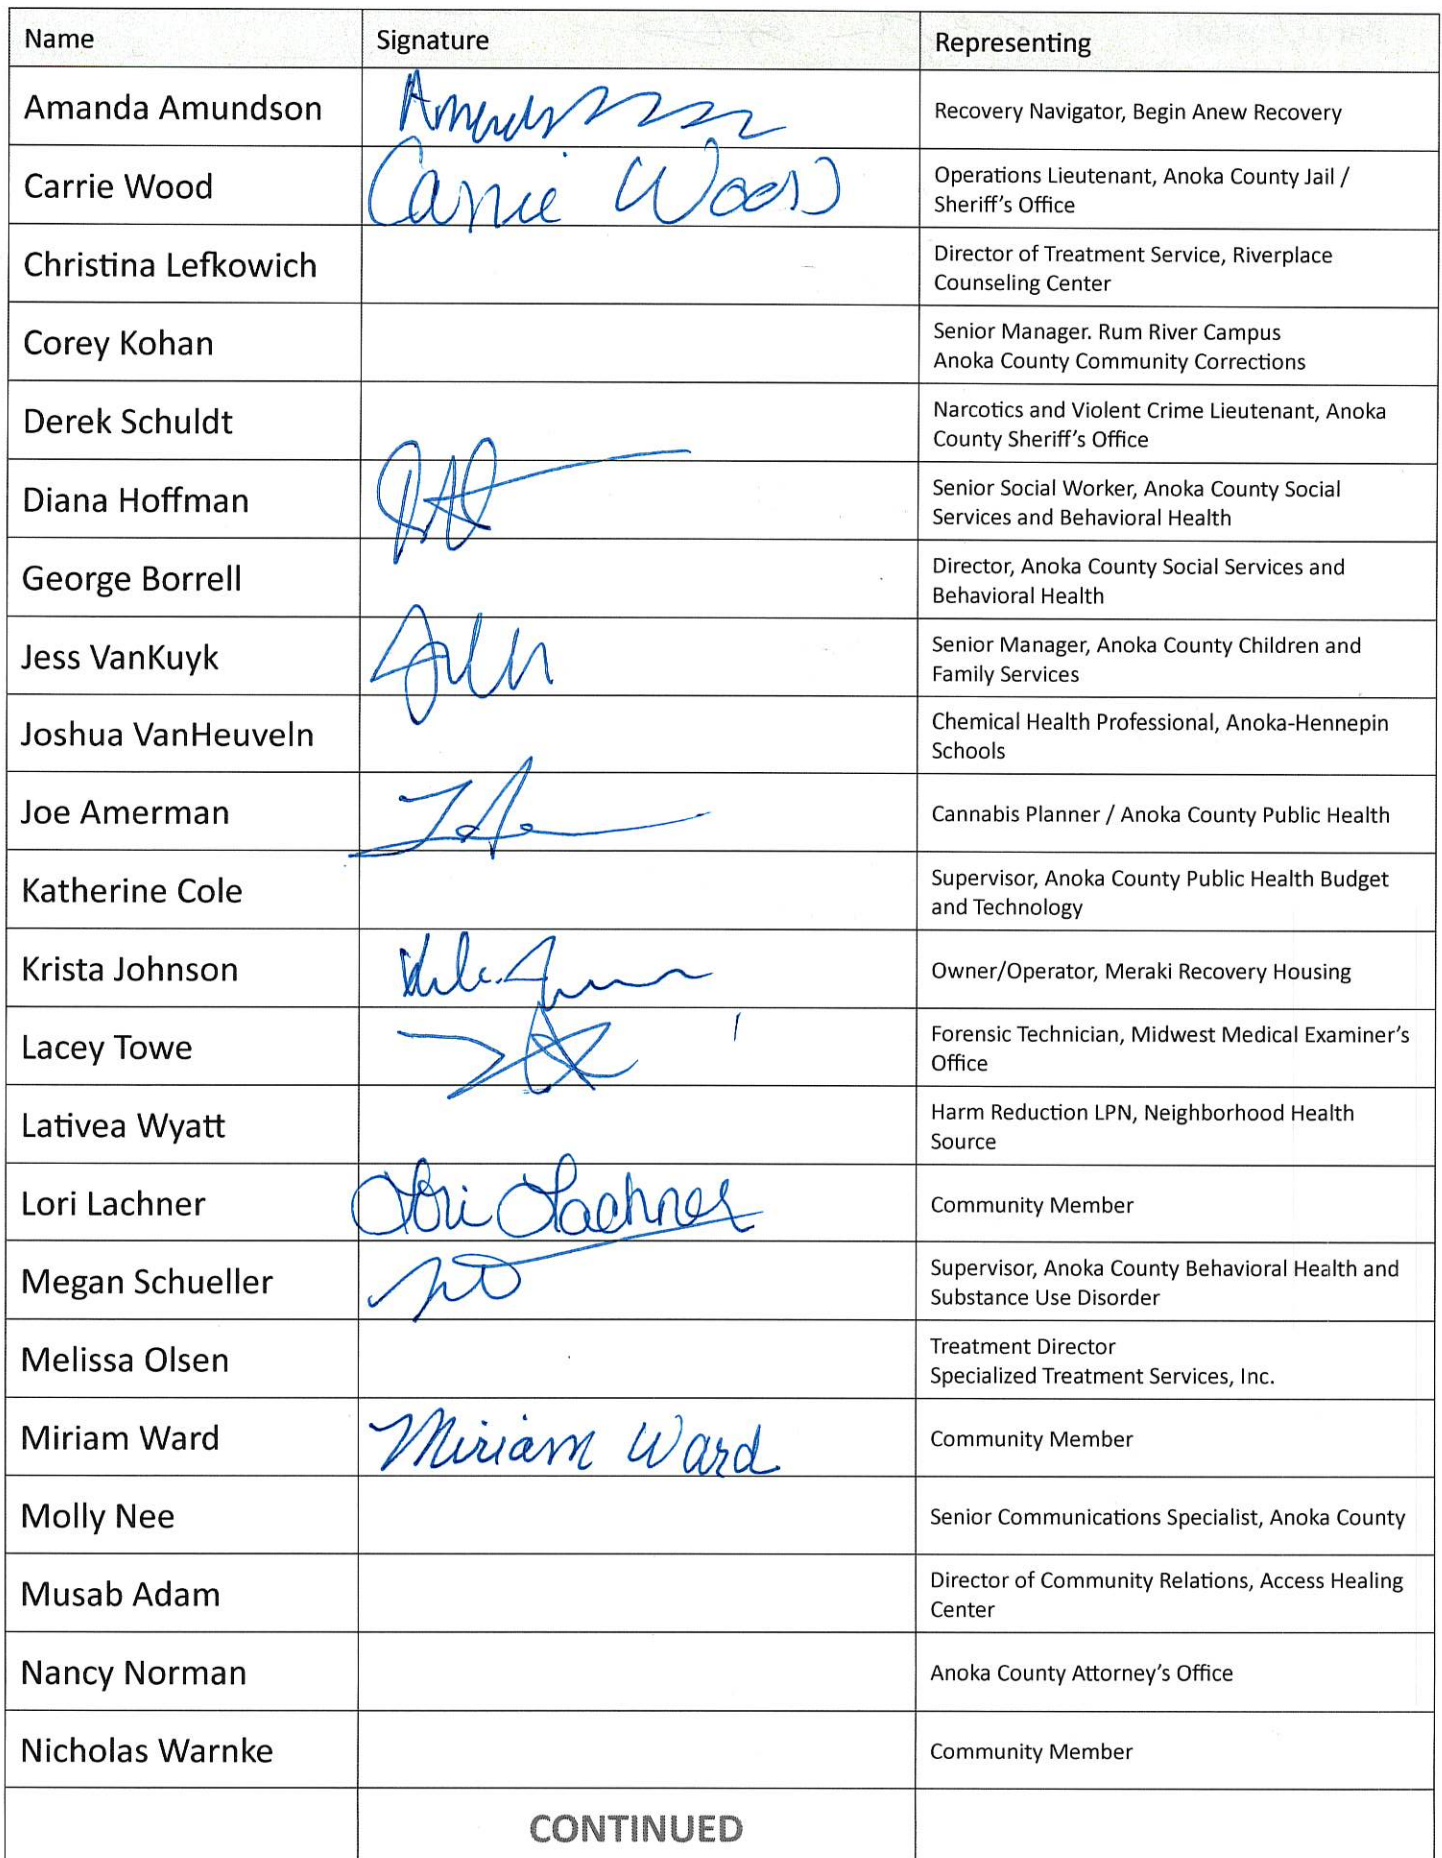 Name Signature Representing
Amanda Amundson Recovery Navigator, Begin Anew Recovery
Carrie Wood Carrie Wood Operations Lieutenant, Anoka County Jail /
Sheriff's Office
Christina Lefkowich Director of Treatment Service, Riverplace
Counseling Center
Corey Kohan Senior Manager. Rum River Campus
Anoka County Community Corrections
Derek Schuldt Narcotics and Violent Crime Lieutenant, Anoka
County Sheriff's Office
Diana Hoffman Senior Social Worker, Anoka County Social
Services and Behavioral Health
George Borrell Director, Anoka County Social Services and
Behavioral Health
Jess VanKuyk Senior Manager, Anoka County Children and
Family Services
Joshua VanHeuveln Chemical Health Professional, Anoka-Hennepin
Schools
Joe Amerman Cannabis Planner / Anoka County Public Health
Katherine Cole Supervisor, Anoka County Public Health Budget
and Technology
Krista Johnson Owner/Operator, Meraki Recovery Housing
Lacey Towe Forensic Technician, Midwest Medical Examiner's
Office
Lativea Wyatt Harm Reduction LPN, Neighborhood Health
Source
Lori Lachner Lori Lachner Community Member
Megan Schueller Supervisor, Anoka County Behavioral Health and
Substance Use Disorder
Melissa Olsen Treatment Director
Specialized Treatment Services, Inc.
Miriam Ward Miriam Ward Community Member
Molly Nee Senior Communications Specialist, Anoka County
Musab Adam Director of Community Relations, Access Healing
Center
Nancy Norman Anoka County Attorney's Office
Nicholas Warnke Community Member
CONTINUED